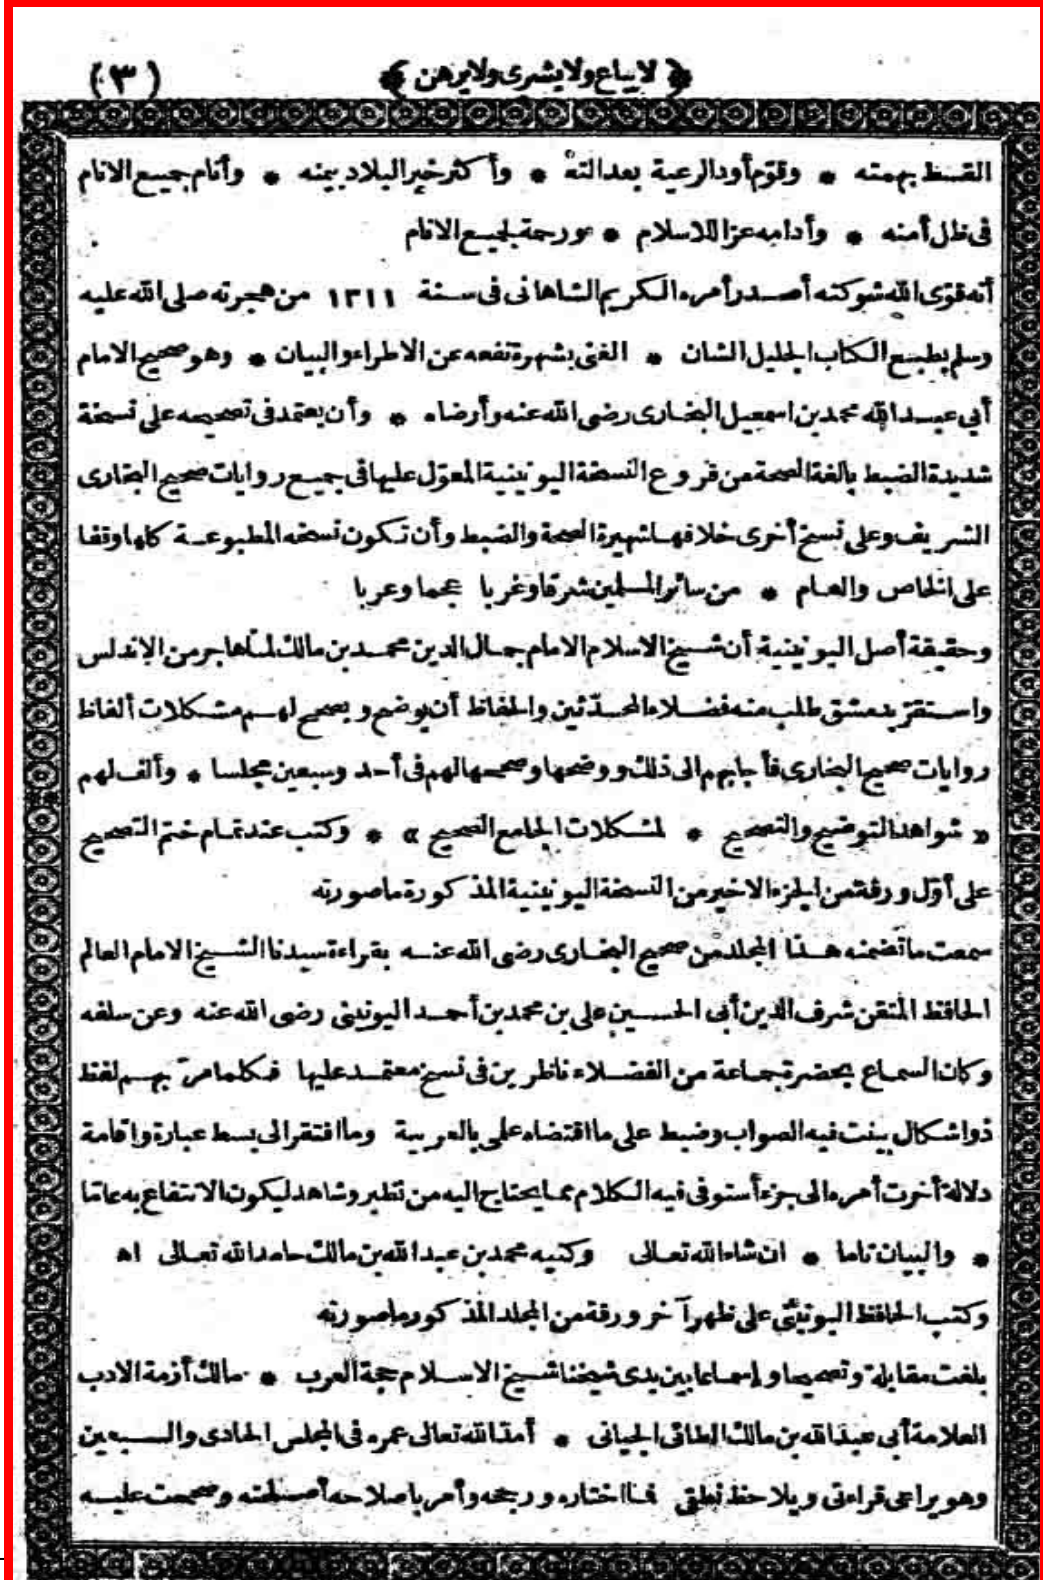 ﴿ لا يباع ولا يشرى ولا يرهن ﴾ (٣)
القسط بهمته * وقوّم أود الرعية بعدالته * وأكثر خير البلاد بيمنه * وأنام جميع الانام
فى ظل أمنه * وأدامه عزا للاسلام * ورحمة لجميع الانام
أنه قوّى الله شوكته أصدر أمره الكريم الشاهانى فى سنة ١٣١١ من هجرته صلى الله عليه
وسلم بطبع الكتاب الجليل الشان * الغنى بشهرة نفعه عن الاطراء والبيان * وهو صحيح الامام
أبى عبد الله محمد بن اسمعيل البخارى رضى الله عنه وأرضاه * وأن يعتمد فى تصحيحه على نسخة
شديدة الضبط بالغة الصحة من فروع النسخة اليونينية المعوّل عليها فى جميع روايات صحيح البخارى
الشريف وعلى نسخ أخرى خلافها شهيرة الصحة والضبط وأن تكون نسخه المطبوعة كلها وقفا
على الخاص والعام * من سائر المسلمين شرقا وغربا عجما وعربا
وحقيقة أصل اليونينية أن شيخ الاسلام الامام جمال الدين محمد بن مالك لمّا هاجر من الاندلس
واستقرّ بدمشق طلب منه فضلاء المحدّثين والحفاظ أن يوضح ويصحح لهم مشكلات ألفاظ
روايات صحيح البخارى فأجابهم الى ذلك ووضحها وصححها لهم فى أحد وسبعين مجلسا * وألف لهم
« شواهد التوضيح والتصحيح * لمشكلات الجامع الصحيح » * وكتب عند تمام ختم التصحيح
على أوّل ورقة من الجزء الاخير من النسخة اليونينية المذكورة ما صورته
سمعت ما تضمنه هذا المجلد من صحيح البخارى رضى الله عنه بقراءة سيدنا الشيخ الامام العالم
الحافظ المتقن شرف الدين أبى الحسين على بن محمد بن أحمد اليونينى رضى الله عنه وعن سلفه
وكان السماع بحضرة جماعة من الفضلاء ناظرين فى نسخ معتمد عليها فكلما مرّ بهم لفظ
ذو اشكال بينت فيه الصواب وضبط على ما اقتضاه علمى بالعربية وما افتقر الى بسط عبارة واقامة
دلالة أخرت أمره الى جزء أستوفى فيه الكلام مما يحتاج اليه من نظير وشاهد ليكون الانتفاع به عامّا
* والبيان تاما * ان شاء الله تعالى وكتبه محمد بن عبد الله بن مالك حامدا لله تعالى اه
وكتب الحافظ اليونينىّ على ظهر آخر ورقة من المجلد المذكور ما صورته
بلغت مقابلة وتصحيحا واسماعا بين يدى شيخنا شيخ الاسلام حجة العرب * مالك أزمة الادب
العلامة أبى عبد الله بن مالك الطائى الجيانى * أمدّ الله تعالى عمره فى المجلس الحادى والسبعين
وهو يراعى قراءتى ويلاحظ نطقى فما اختاره ورجحه وأمر باصلاحه أصلحته وصححت عليه